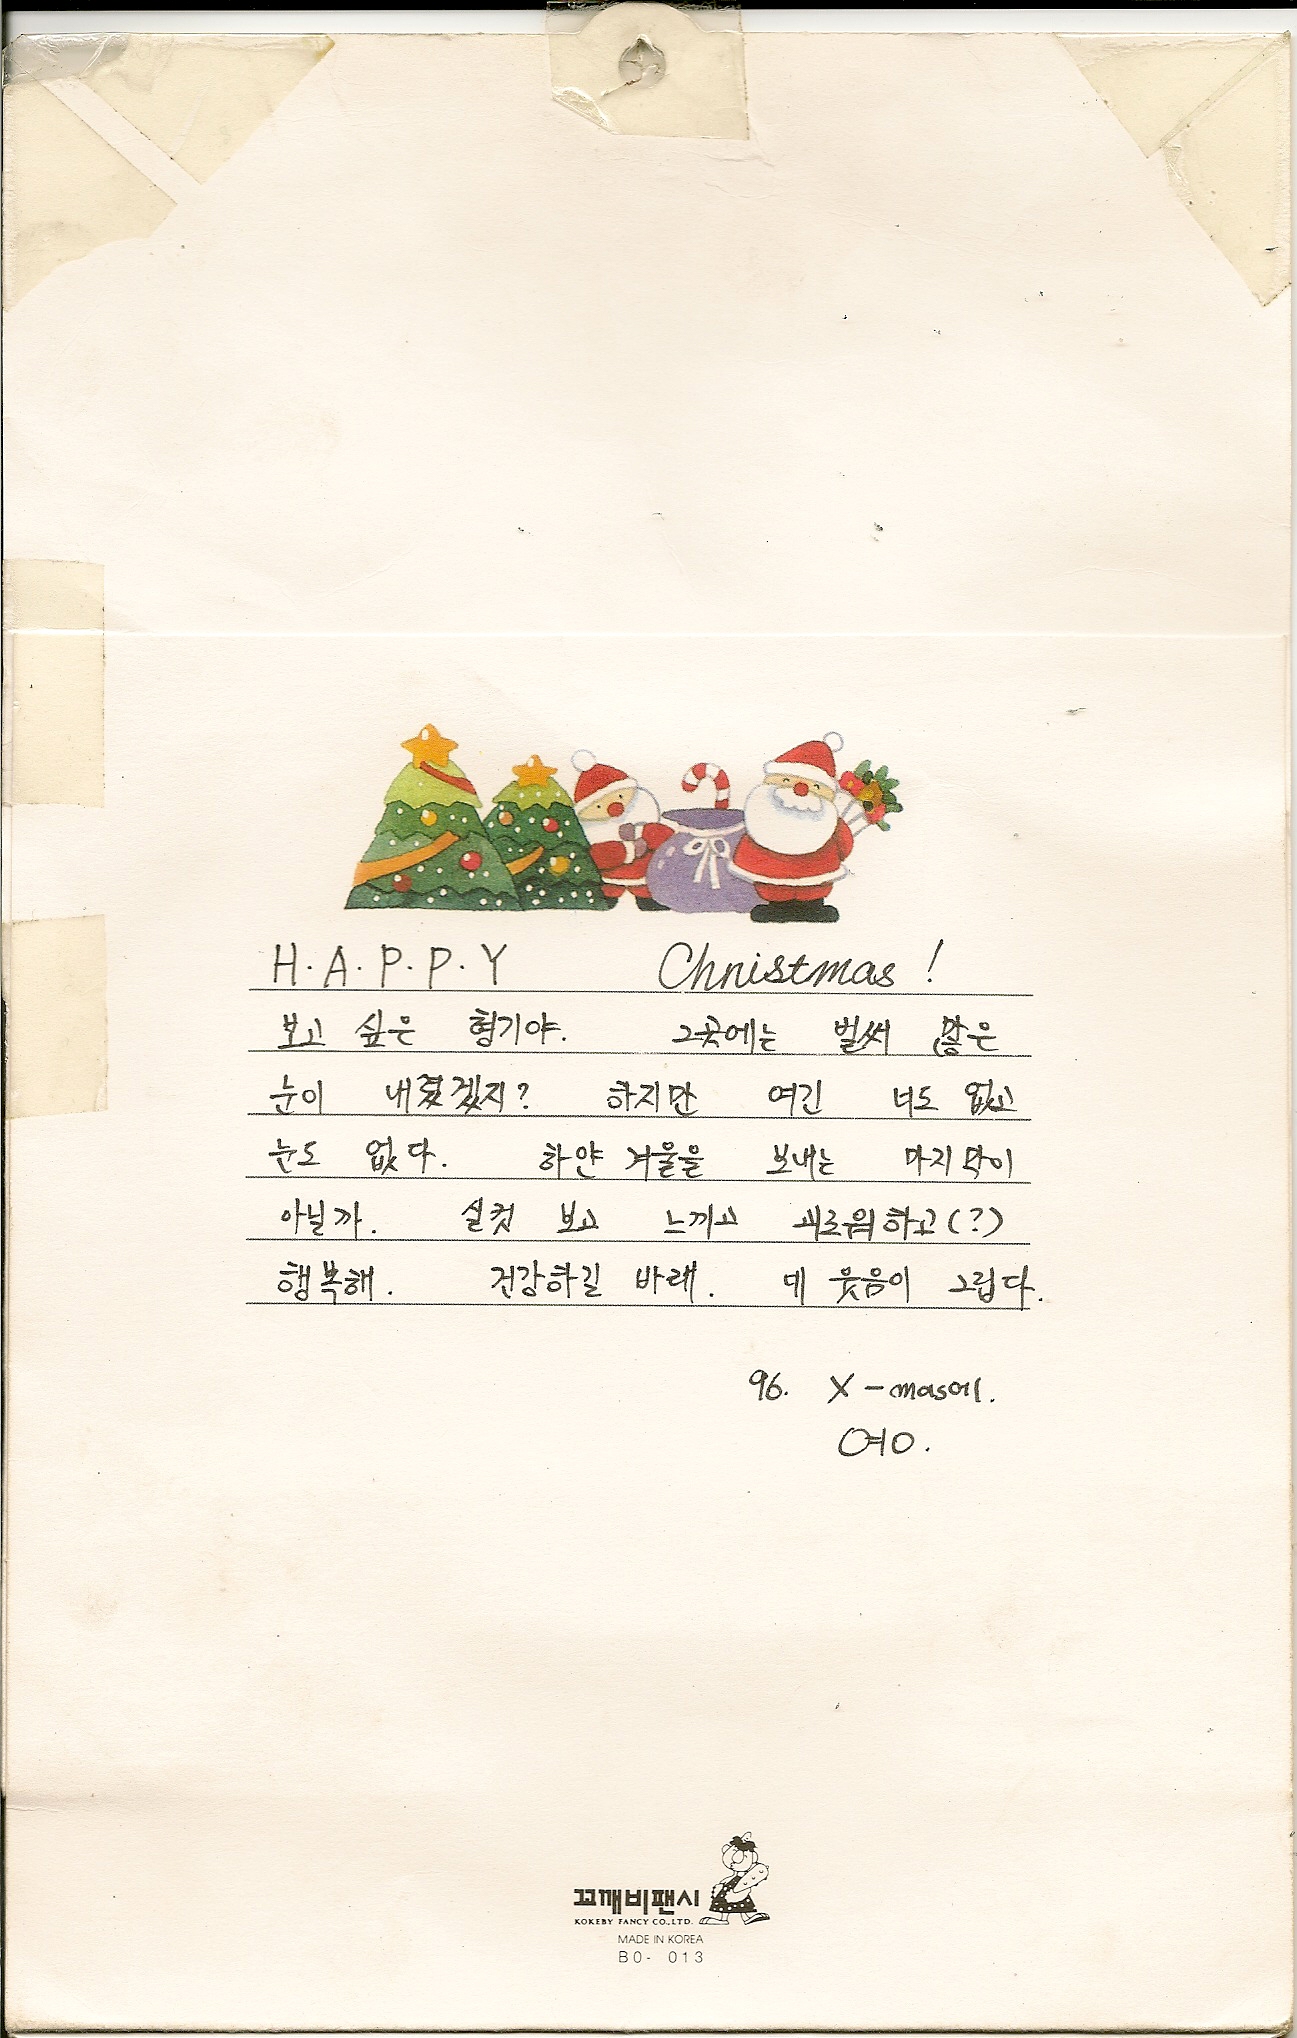 H.A.P.P.Y Christmas!
보고 싶은 형기야. 그곳에는 벌써 많은
눈이 내렸겠지? 하지만 여긴 너도 없고
눈도 없다. 하얀 겨울을 보내는 마지막이
아닐까. 실컷 보고 느끼고 괴로워하고(?)
행복해. 건강하길 바래. 네 웃음이 그립다.
96. X-mas에.
여O.
꼬깨비팬시
KOKEBY FANCY CO.,LTD.
MADE IN KOREA
B0- 013